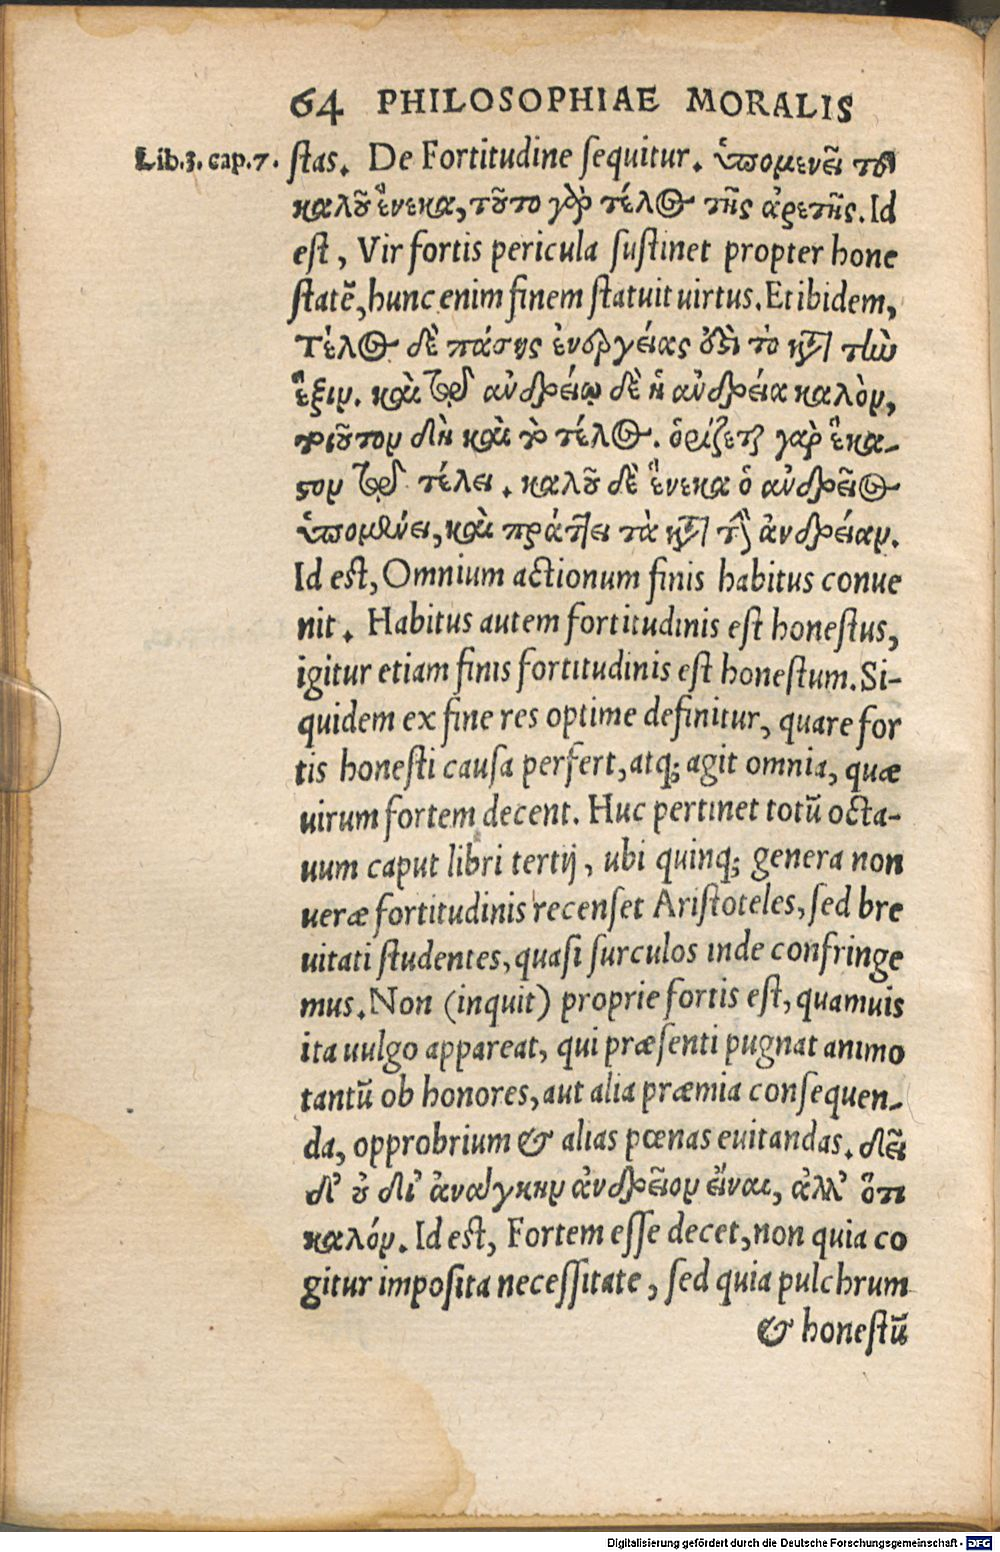 64 PHILOSOPHIAE MORALIS
Lib.3. cap.7. stas. De Fortitudine sequitur. ὑπομενεῖ τοῦ
καλοῦ ἕνεκα, τοῦτο γὰρ τέλος τῆς ἀρετῆς. Id
est, Vir fortis pericula sustinet propter hone
statẽ, hunc enim finem statuit uirtus. Et ibidem,
Τέλος δὲ πάσης ἐνεργείας ὅδε τὸ κατὰ τὴν
ἕξιν. καὶ τῷ ἀνδρείῳ δὲ ἡ ἀνδρεία καλὸν,
τοιοῦτον δὴ καὶ τὸ τέλος. ὁρίζεται γὰρ ἕκα-
στον τῷ τέλει. καλοῦ δὲ ἕνεκα ὁ ἀνδρεῖος
ὑπομένει, καὶ πράττει τὰ κατὰ τὴν ἀνδρείαν.
Id est, Omnium actionum finis habitus conue
nit. Habitus autem fortitudinis est honestus,
igitur etiam finis fortitudinis est honestum. Si-
quidem ex fine res optime definitur, quare for
tis honesti causa perfert, atq; agit omnia, quæ
uirum fortem decent. Huc pertinet totũ octa-
uum caput libri tertij, ubi quinq; genera non
ueræ fortitudinis recenset Aristoteles, sed bre
uitati studentes, quasi surculos inde confringe
mus. Non (inquit) proprie fortis est, quamuis
ita uulgo appareat, qui præsenti pugnat animo
tantũ ob honores, aut alia præmia consequen-
da, opprobrium & alias pœnas euitandas. δεῖ
δ' οὐ δι' ἀνάγκην ἀνδρεῖον εἶναι, ἀλλ' ὅτι
καλόν. Id est, Fortem esse decet, non quia co
gitur imposita necessitate, sed quia pulchrum
& honestũ
Digitalisierung gefördert durch die Deutsche Forschungsgemeinschaft - DFG